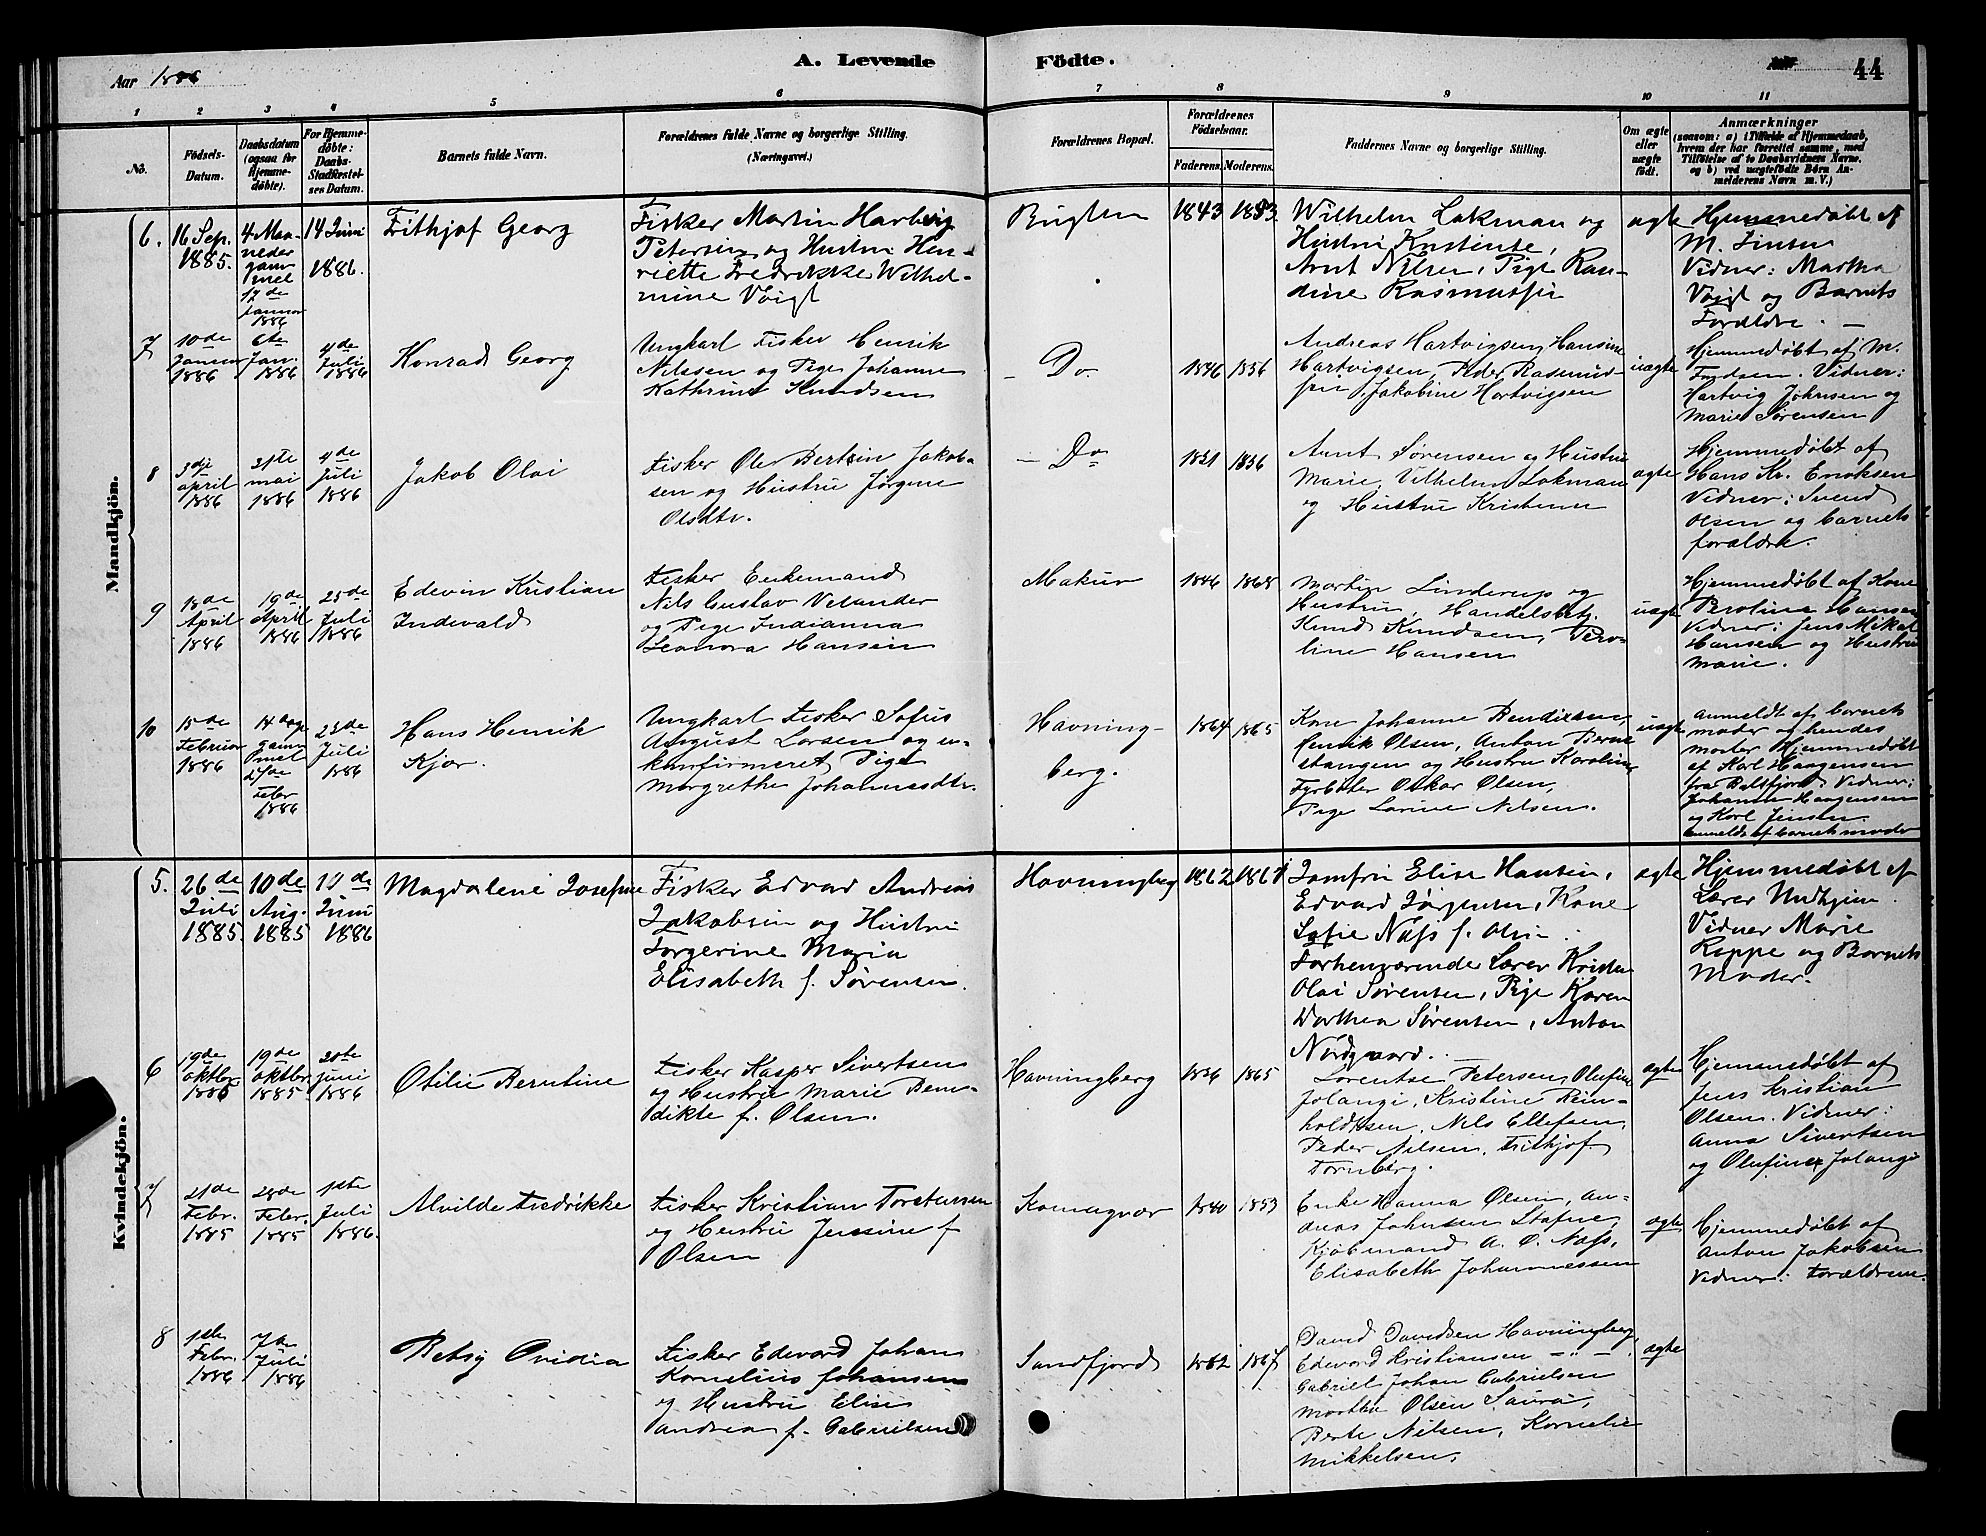 Aar 1886
A. Levende
Födte.
44
1
2
3
4
5
6
7
8
9
10
11
No.
Födsels-
Datum.
Daabsdatum
(ogsaa for
Hjemme-
döbte).
For Hjemme-
döbte:
Daabs-
Stadfæstel-
ses Datum.
Barnets fulde Navn.
Forældrenes fulde Navne og borgerlige Stilling.
(Næringsvei.)
Forældrenes Bopæl.
Forældrenes
Födselsaar.
Faderens.
Moderens.
Faddernes Navne og borgerlige Stilling.
Om ægte
eller
uægte
födt.
Anmærkninger
(saasom: a) i Tilfælde af Hjemmedaab,
hvem der har forrettet samme, med
Tilföielse af to Daabsvidners Navne,
og b) ved uægtefödte Börn An-
melderens Navn m. V.)
Mandkjön.
6.
16 Sep.
1885.
4 Maa-
neder
gam-
mel
17de
Januar
1886
14 Juni
1886.
Frithjof Georg
Fisker Martin Hartvig
Petersen og Hustru Hen-
riette Fredrikke Wilhel-
mine Voigt
Bugten
1843
1853
Wilhelm Lakman og
Hustru Kristense,
Arnt Nilsen, Pige Ran-
dine Rasmussen
ægte
Hjemmedøbt af
M. Jensen
Vidner: Martha
Voigt og Barnets
Forældre. —
7
10de
Januar
1886
6te
Jan.
1886
4de
Juli
1886
Konrad Georg
Ungkarl Fisker Henrik
Nilssen og Pige Johanne
Kathrine Knudsen
— Do
1846
1856
Andreas Hartvigsen, Hansine
Hartvigsen, Peder Rasmus-
sen, Jakobine Hartvigsen
uægte
Hjemmedøbt af M.
Vidner:
Hartvig Johnsen og
Marie Sørensen
8
3die
april
1886
31te
mai
1886
4de
Juli
1886
Jakob Olai
Fisker Ole Bertein Jakob-
sen og Hustru Jørgine
Olsdtr.
— Do
1831
1836
Arnt Sørensen og Hustru
Marie, Vilhelm Lokman
og Hustru Kristense
ægte
Hjemmedøbt af
Hans Kr. Enoksen
Vidner: Svend
Olsen og barnets
forældre.
9
18de
April
1886
19de
April
1886
25de
Juli
1886
Edevin Kristian
Indevald
Fisker Enkemand
Nils Gustav Velander
og Pige Indianna
Leonora Hansen
Makur
1846
1868
Martin Linderup og
Hustru, Handelsbetj.
Knud Knudsen, Pero-
line Hansen
uægte
Hjemmedøbt af Kone
Peroline Hansen
Vidner: Jens Mikal
Hansen og Hustru
Marie.
10
15de
Februar
1886
14 dage
gam-
mel
27de
Febr
1886
25de
Juli
1886
Hans Henrik
Kjær.
Ungkarl Fisker Sofus
August Larsen og u-
konfirmeret Pige
Margrethe Johannesdtr.
Havning-
berg.
1864
1865
Kone Johanne Bendixsen,
Henrik Olsen, Anton Berne
stangen og Hustru Karoline
Fyrbøter Oskar Olsen,
Pige Larine Nilsen.
uægte
anmeldt af barnets
moder og hendes
moster Hjemmedøbt
af Karl Haagensen
fra Balsfjord. Vidner:
Johanna Haagensen
og Karl Jensen.
anmeldt af barnets moder
Kvindekjön.
5.
26de
Juli
1885.
10de
Aug.
1885
10de
Juni
1886
Magdalene Josefine
Fisker Edvard Andreas
Jakobsen og Hustru
Torgerine Maria
Elisabeth f. Sørensen.
Havningberg
1862
1861
Jomfru Elise Hansen,
Edvard Jørgensen, Kone
Sofie Næss f. Olsen.
Forhenværende Lærer Kristen
Olai Sørensen, Pige Karen
Dorthea Sørensen, Anton
Nordgaard. —
ægte
Hjemmedøbt af
Lærer Undhjem.
Vidner Marie
Reppe og Barnets
Moder.
6
19de
oktbr
1885
19de
oktbr
1885
20te
juni
1886
Otilie Berntine
Fisker Kasper Sivertsen
og Hustru Marie Bene-
dikte f. Olsen.
Havningberg
1856
1865
Lorentse Petersen, Olufine
Jolangi, Kristine Rein-
holdtsen, Nils Ellefsen,
Peder Nilsen, Frithjof
Tornberg.
ægte
Hjemmedøbt af
Jens Kristian
Olsen. Vidner:
Anna Sivertsen
og Olufine Jolangi
7
21de
Febr.
1885
28de
Febr.
1885
1ste
Juli
1886.
Alvilde Fredrikke
Fisker Kristian Torstensen
og Hustru Jensine f.
Olsen
Komagvær
1840
1853
Enke Hanna Olsen, An-
dreas Johnsen Stafne,
Kjøbmand A. O. Næss,
Elisabeth Johannessen
ægte
Hjemmedøbt af
Anton Jakobsen
Vidner: Forældrene.
8
1ste
Febr.
1886
7de
Juli
1886
Betsy Ovidia
Fisker Edevard Johan
Kornelius Johansen
og Hustru Elise
Andrea f. Gabrielsen
Sandfjord
1862
1867
David Davidsen Havningberg,
Edevard Kristiansen — " —
Gabriel Johan Gabrielsen
Marthe Olsen Saura,
Berte Nilsen, Kornelie
Mikkelsen.
ægte